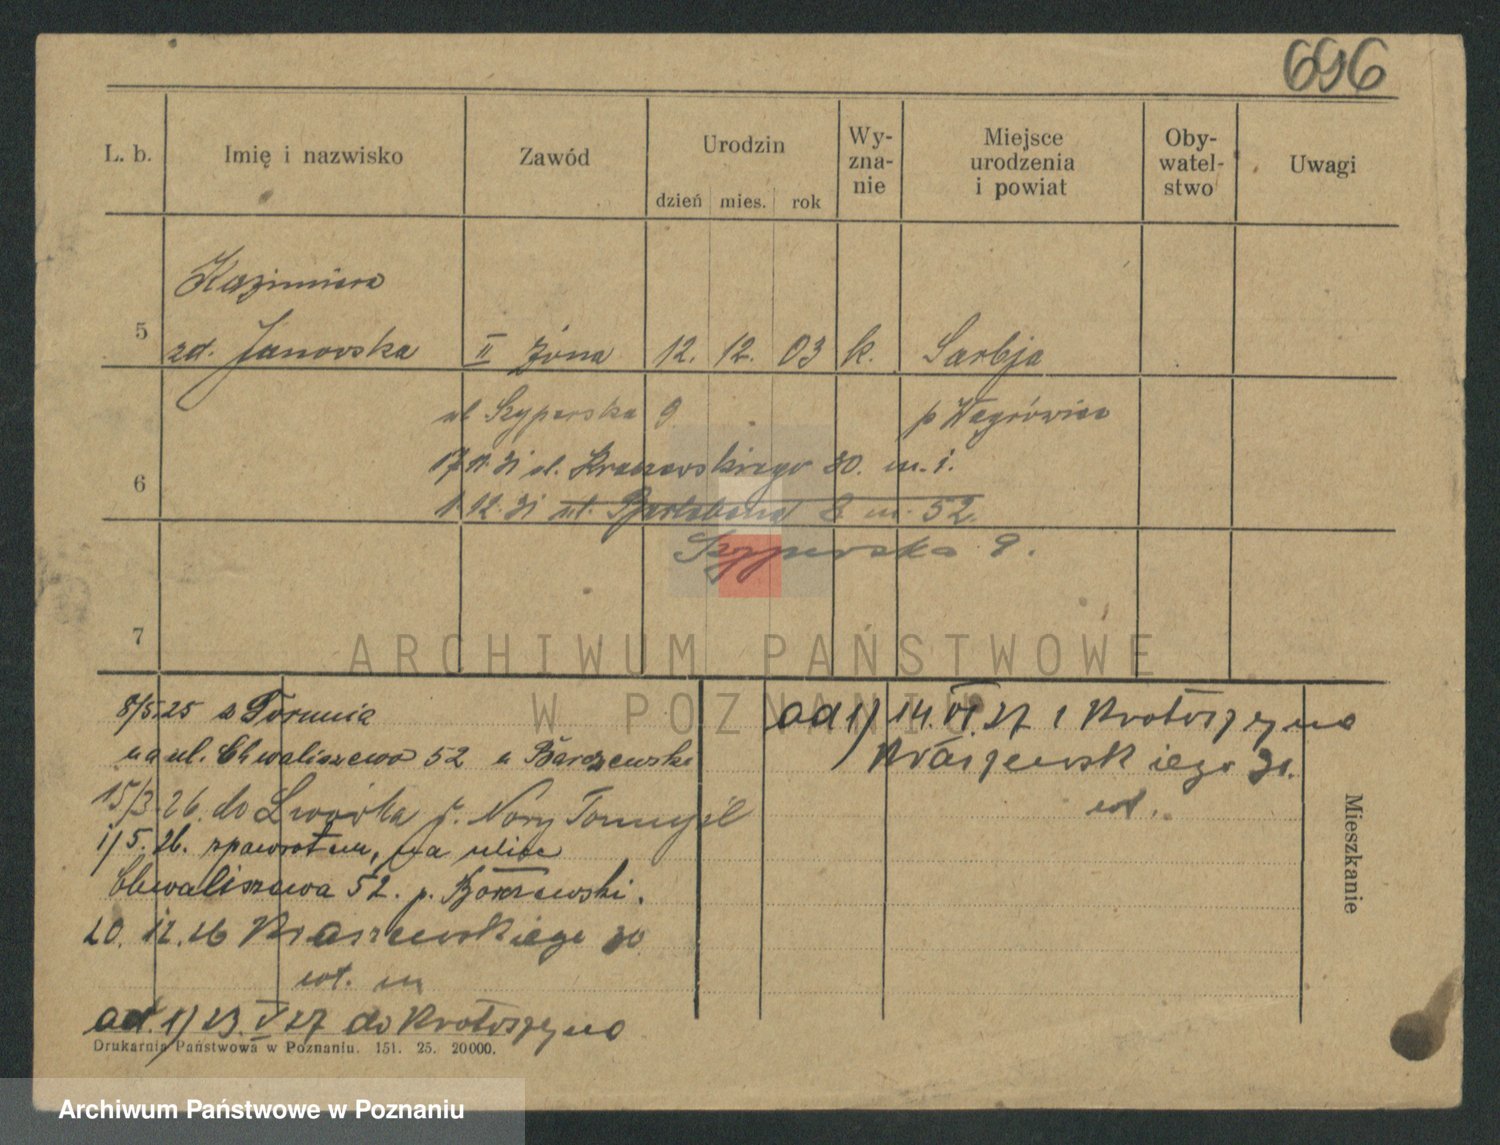 696
L. b. Imię i nazwisko Zawód Urodzin dzień mies. rok Wy-zna-nie Miejsce urodzenia i powiat Oby-watel-stwo Uwagi
Kazimiera
5 zd. Janowska II żona 12. 12. 03 k. Sarbja
ul Szyperska 9 p Wągrówiec
17 11. 31 ul. Kraszewskiego 30. m. 1.
6
1. 12. 31 ul. 8 m. 52.
Szyperska 9.
7
ARCHIWUM PAŃSTWOWE
W POZNANIU
8/5 25 z Torunia
na ul. Chwaliszewo 52 u Barczewski
15/3. 26. do Lwówka p. Nowy Tomyśl
1/5. 26. zpawrotem, na ulice
Chwaliszewa 52. p.
20. 12. 26 Kraszewskiego 30
wł. m
ad. 1) 23. V 27 do Krotoszyna
ad 1) 14. VI. 27 z Krotoszyna
Kraszewskiego 30.
wł.
Mieszkanie
Drukarnia Państwowa w Poznaniu. 151. 25. 20000.
Archiwum Państwowe w Poznaniu